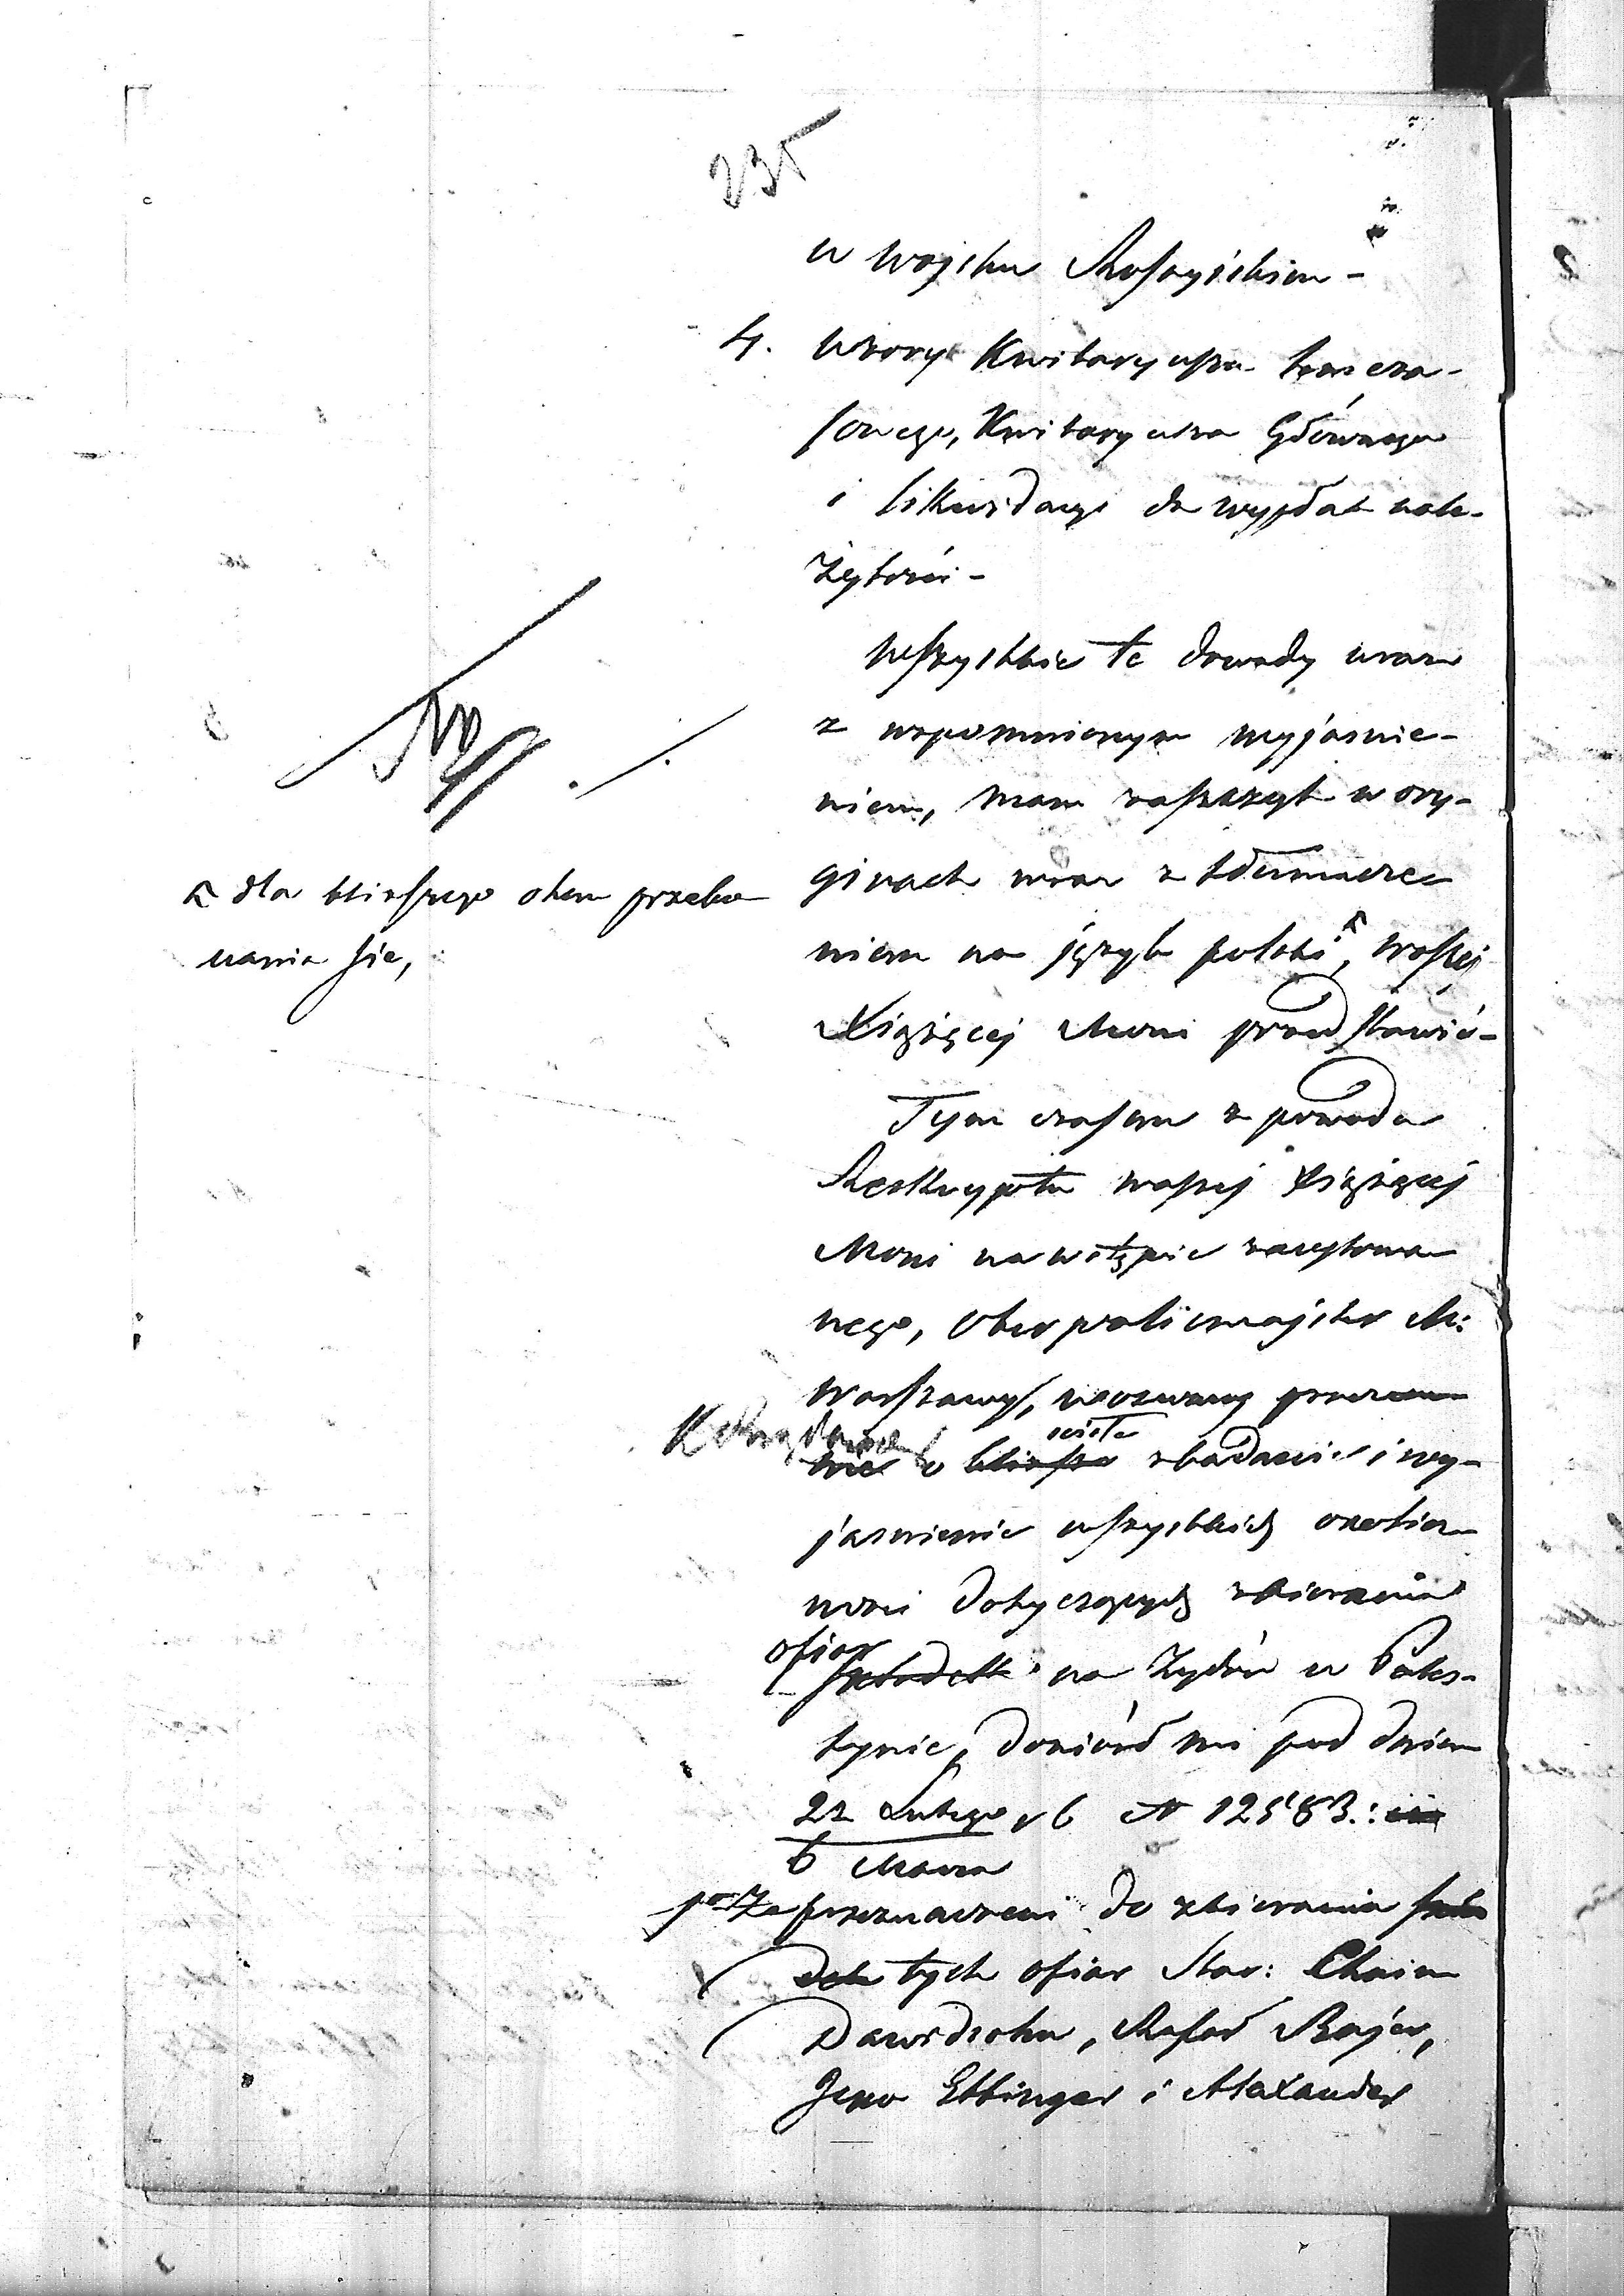 235
w woysku Rossyiskiem -
4. Wzory Kwitaryusza tymcza-
sowego, Kwitaryusza Głównego
i likwidacyi do wypłat nale-
żytości -
Wszystkie te dowody wraz
z wspomnionym wyjaśnie-
niem, mam zaszczyt w ory-
ginach wraz z tłumacze-
niem na język polski, Waszej
Xiążęcej Mości przedstawić -
dla bliższego okem przeko
nania się,
Tym czasem z powodu
Reskryptu Waszej Xiążęcej
Mości na wstępie zacytowa
nego, Oberpolicmajster M:
Warszawy, wezwany przezem
nie o bliższe ścisłe zbadanie i wy-
jaśnienie wszystkich okolicz-
ności dotyczących zbierania
ofiar składek na Żydów w Pales-
tynie, doniósł mi pod dniem
22 Lutego r b N 12583.:
6 Marca
1o Że przeznaczeni do zbierania skła
dek tych ofiar Star: Chaim
Dawidsohn, Rafał Bajer,
Jero Ettinger i Alexander